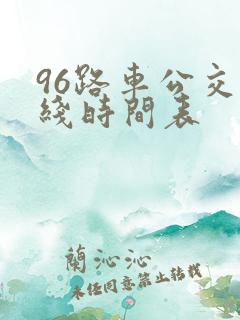 96路車公交
綫時間表
蘭沁沁
未经同意禁止转载